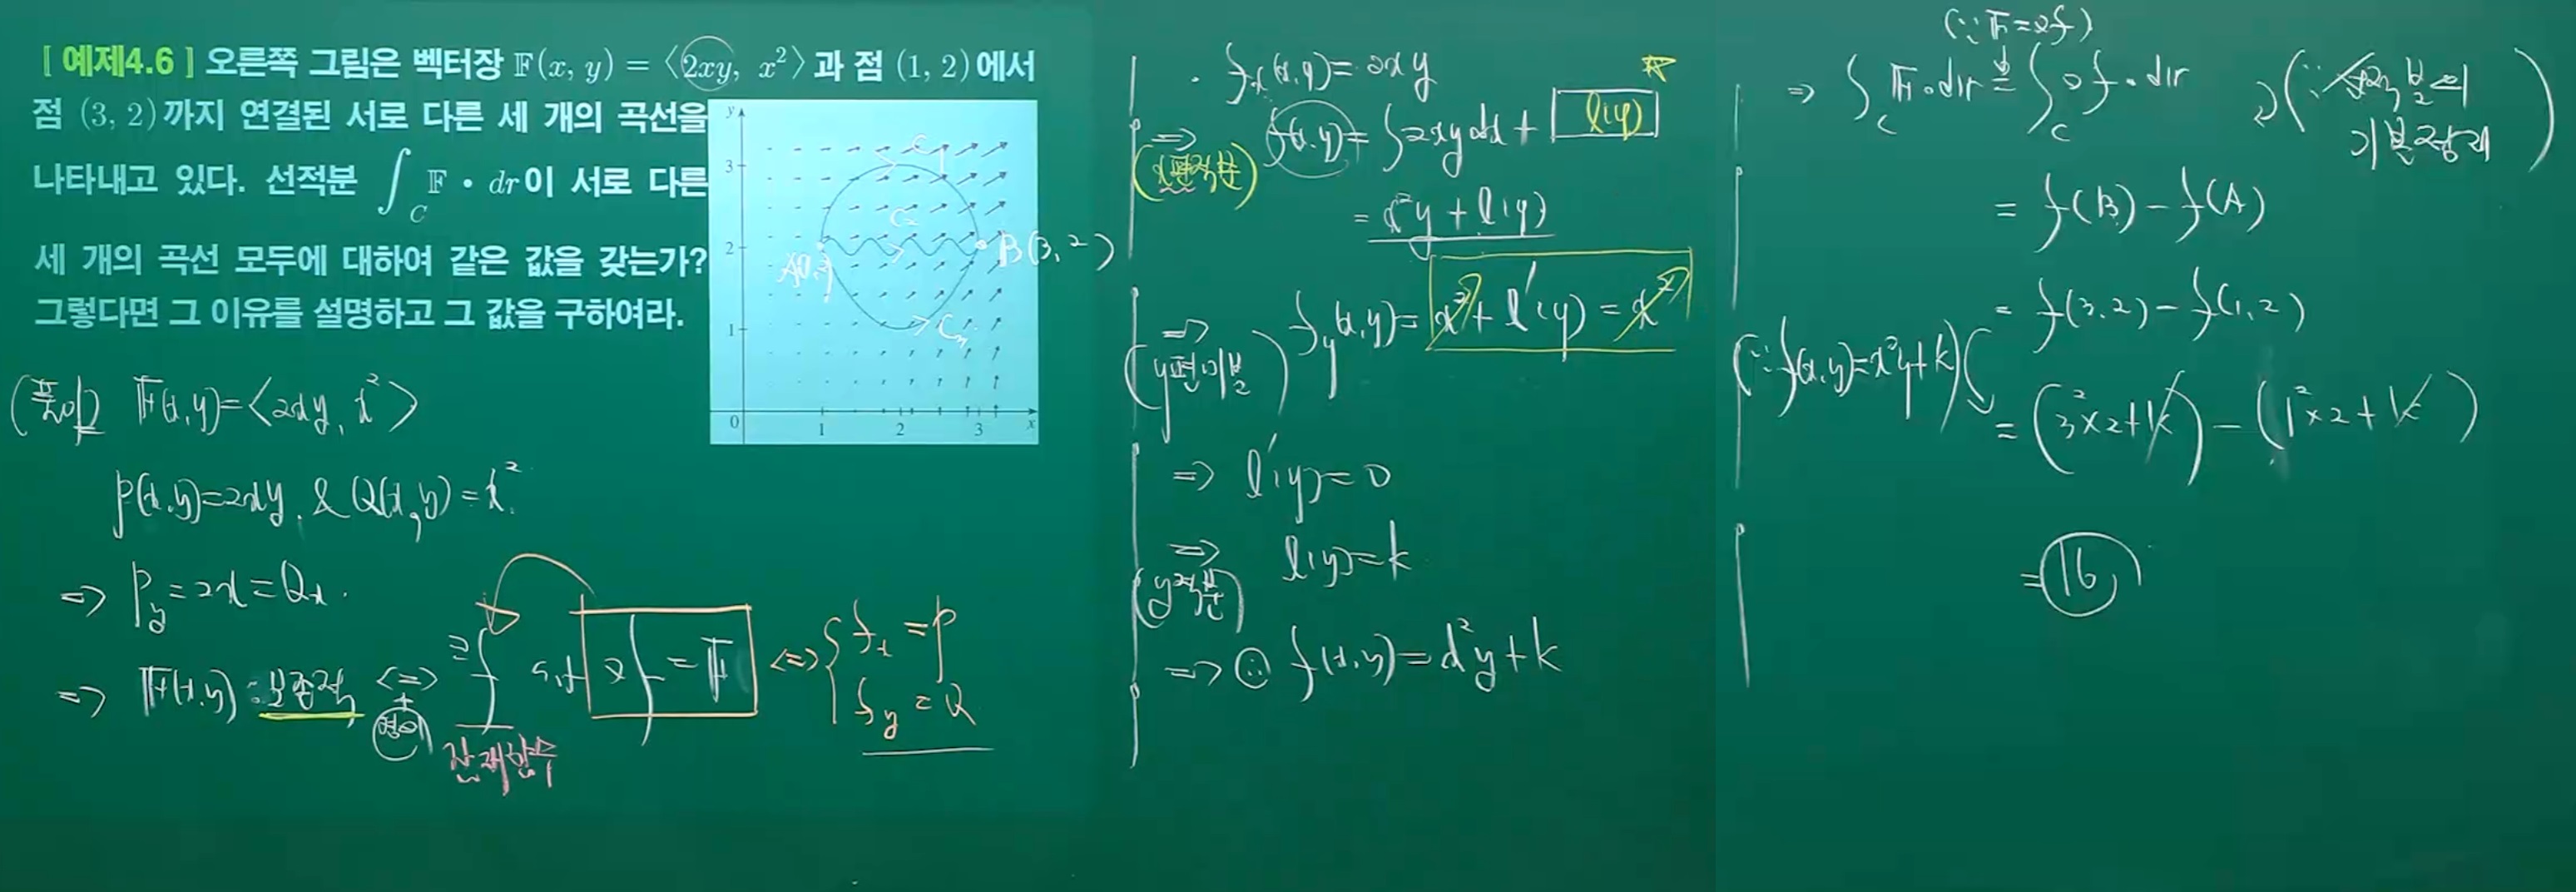 [ 예제4.6 ] 오른쪽 그림은 벡터장 𝔽(x, y) = ⟨2xy, x²⟩과 점 (1, 2)에서
점 (3, 2)까지 연결된 서로 다른 세 개의 곡선을
나타내고 있다. 선적분 ∫_C 𝔽 • dr이 서로 다른
세 개의 곡선 모두에 대하여 같은 값을 갖는가?
그렇다면 그 이유를 설명하고 그 값을 구하여라.
y
3
2
1
0
1
2
3
x
C₁
C₂
C₃
A(1,2)
B(3, 2)
(풀이) 𝔽(x,y)=<2xy, x²>
P(x,y)=2xy, & Q(x,y)=x²
⇒ P_y=2x=Q_x.
⇒ 𝔽(x,y) : 보존적 ⇔ ∃f s.t ∇f=𝔽 ⇔ { f_x=P
f_y=Q
+
정의
잠재함수
· f_x(x,y)=2xy
⇒ f(x,y)=∫2xydx+ l(y)
(x편적분)
=x²y+l(y)
⇒ f_y(x,y)=x²+l'(y)=x²
(y편미분)
⇒ l'(y)=0
⇒ l(y)=k
(y적분)
⇒ ∴ f(x,y)=x²y+k
(∵𝔽=∇f)
⇒ ∫_C 𝔽·dr=∫_C ∇f·dr
(∵선적분의
기본정리)
=f(B)-f(A)
=f(3,2)-f(1,2)
(∵f(x,y)=x²y+k)
=(3²×2+k)-(1²×2+k)
=16